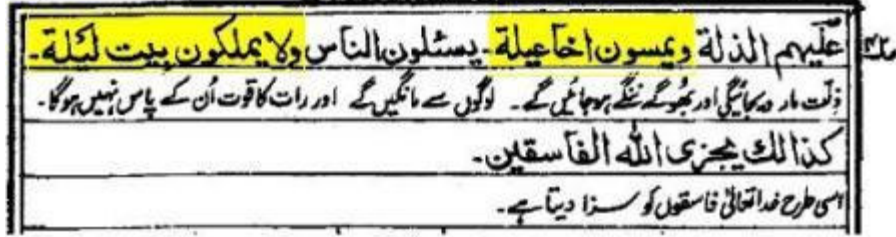 عليهم الذلة ويمسون اخا عيلة ـ يسئلون الناس ولا يملكون بيت ليلة ـ
ذلّت مار دیجائیگی اور بھوکے ننگے ہو جائیں گے ۔ لوگوں سے مانگیں گے اور رات کا قوت اُن کے پاس نہیں ہوگا ۔
كذالك يجزى الله الفاسقين ـ
اسی طرح خدا تعالیٰ فاسقوں کو سزا دیتا ہے ۔